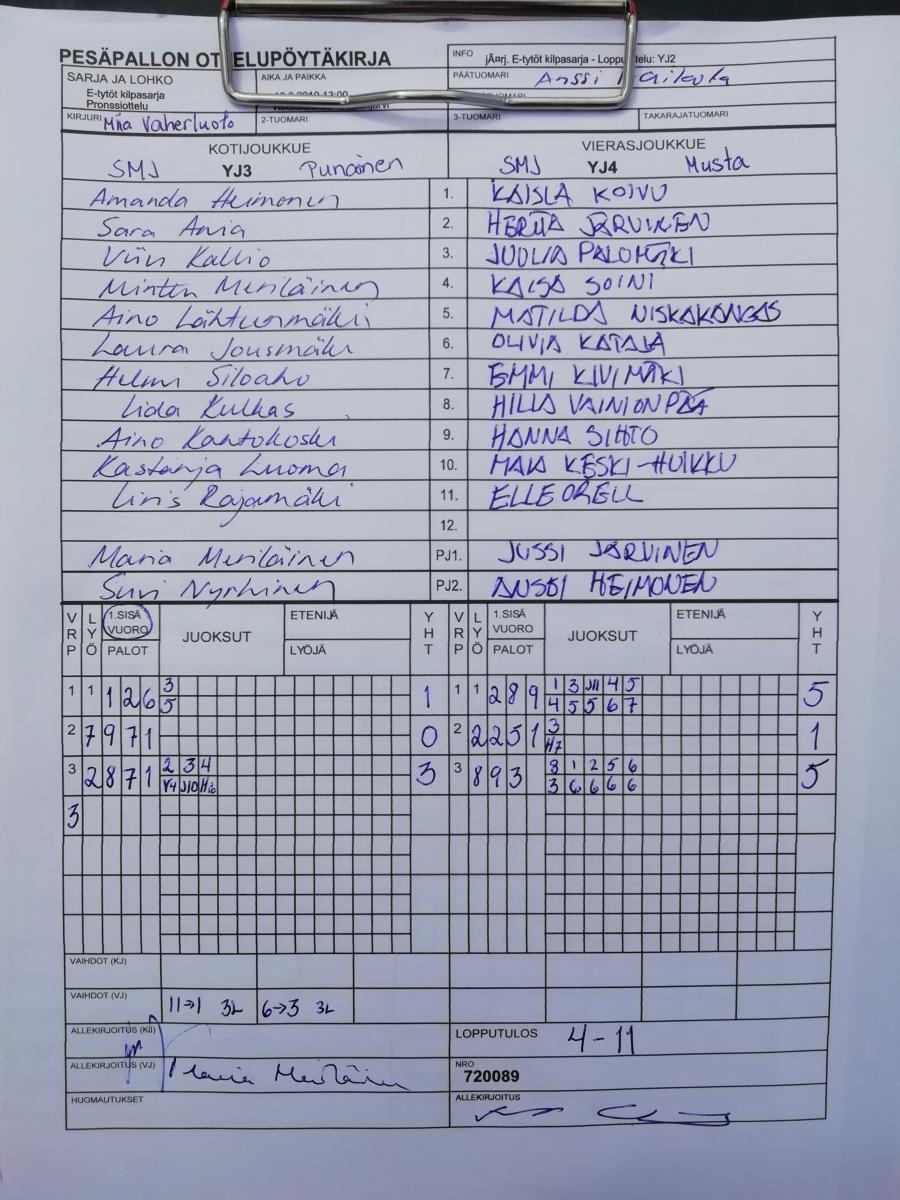 PESÄPALLON OT ELUPÖYTÄKIRJA
INFO jÃ¤rj. E-tytöt kilpasarja - Loppu telu: YJ2
SARJA JA LOHKO
E-tytöt kilpasarja
Pronssiottelu
AIKA JA PAIKKA
PÄÄTUOMARI Anssi
KIRJURI Miia Vaherluoto
2-TUOMARI
3-TUOMARI
TAKARAJATUOMARI
KOTIJOUKKUE VIERASJOUKKUE
SMJ YJ3 Punainen SMJ YJ4 Musta
Amanda Heimonen 1. KAISLA KOIVU
Sara Ania 2. HERTTA JÄRVINEN
Viivi Kallio 3. JUULIA PALOMÄKI
Minttu Meriläinen 4. KAISA SOINI
Aino Lähtuenmäki 5. MATILDA NISKAKANGAS
Laura Jousmäki 6. OLIVIA KATAJA
Helmi Siloaho 7. EMMI KIVIMÄKI
Iida Kulkas 8. HILLA VAINIONPÄÄ
Aino Kantokoski 9. HANNA SIHTO
Kastanja Luoma 10. MAIA KESKI-HUIKKU
Iiris Rajamäki 11. ELLE ORELL
12.
Maria Meriläinen PJ1. JUSSI JÄRVINEN
Suvi Nyrhinen PJ2. ANSSI HEIMONEN
VRP LYÖ 1.SISÄ VUORO PALOT JUOKSUT ETENIJÄ LYÖJÄ YHT VRP LYÖ 1.SISÄ VUORO PALOT JUOKSUT ETENIJÄ LYÖJÄ YHT
1 1 1 2 6 3 1 1 1 2 8 9 1 3 JII 4 5 5
5 4 5 5 6 7
2 7 9 7 1 0 2 2 2 5 1 3 1
H7
3 2 8 7 1 2 3 4 3 3 8 9 3 8 1 2 5 6 5
V4 J10 H10 3 6 6 6 6
3
VAIHDOT (KJ)
VAIHDOT (VJ) 11→1 3L 6→3 3L
ALLEKIRJOITUS (KJ)
LOPPUTULOS 4-11
ALLEKIRJOITUS (VJ) Maria Meriläinen
NRO
720089
HUOMAUTUKSET
ALLEKIRJOITUS